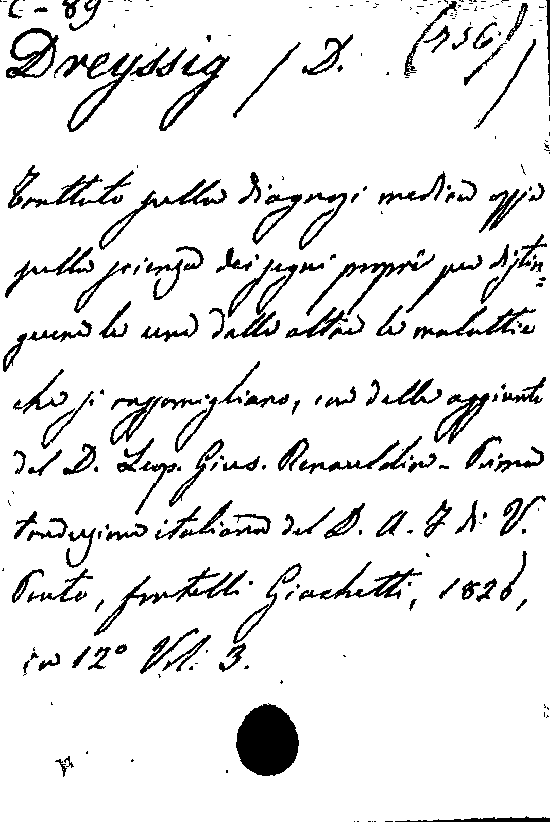 C - 89
Dreyssig / D. (436)
Trattato sulla diagnosi medica ossia
sulla scienza dei segni proprî per distin=
guere le une dalle altre le malattie
che si rassomigliano, con delle aggiunte
del D. Leop. Gius. Renauldin - Prima
traduzione italiana del D. A. F di V.
Prato, fratelli Giachetti, 1826,
in 12° Vol. 3.